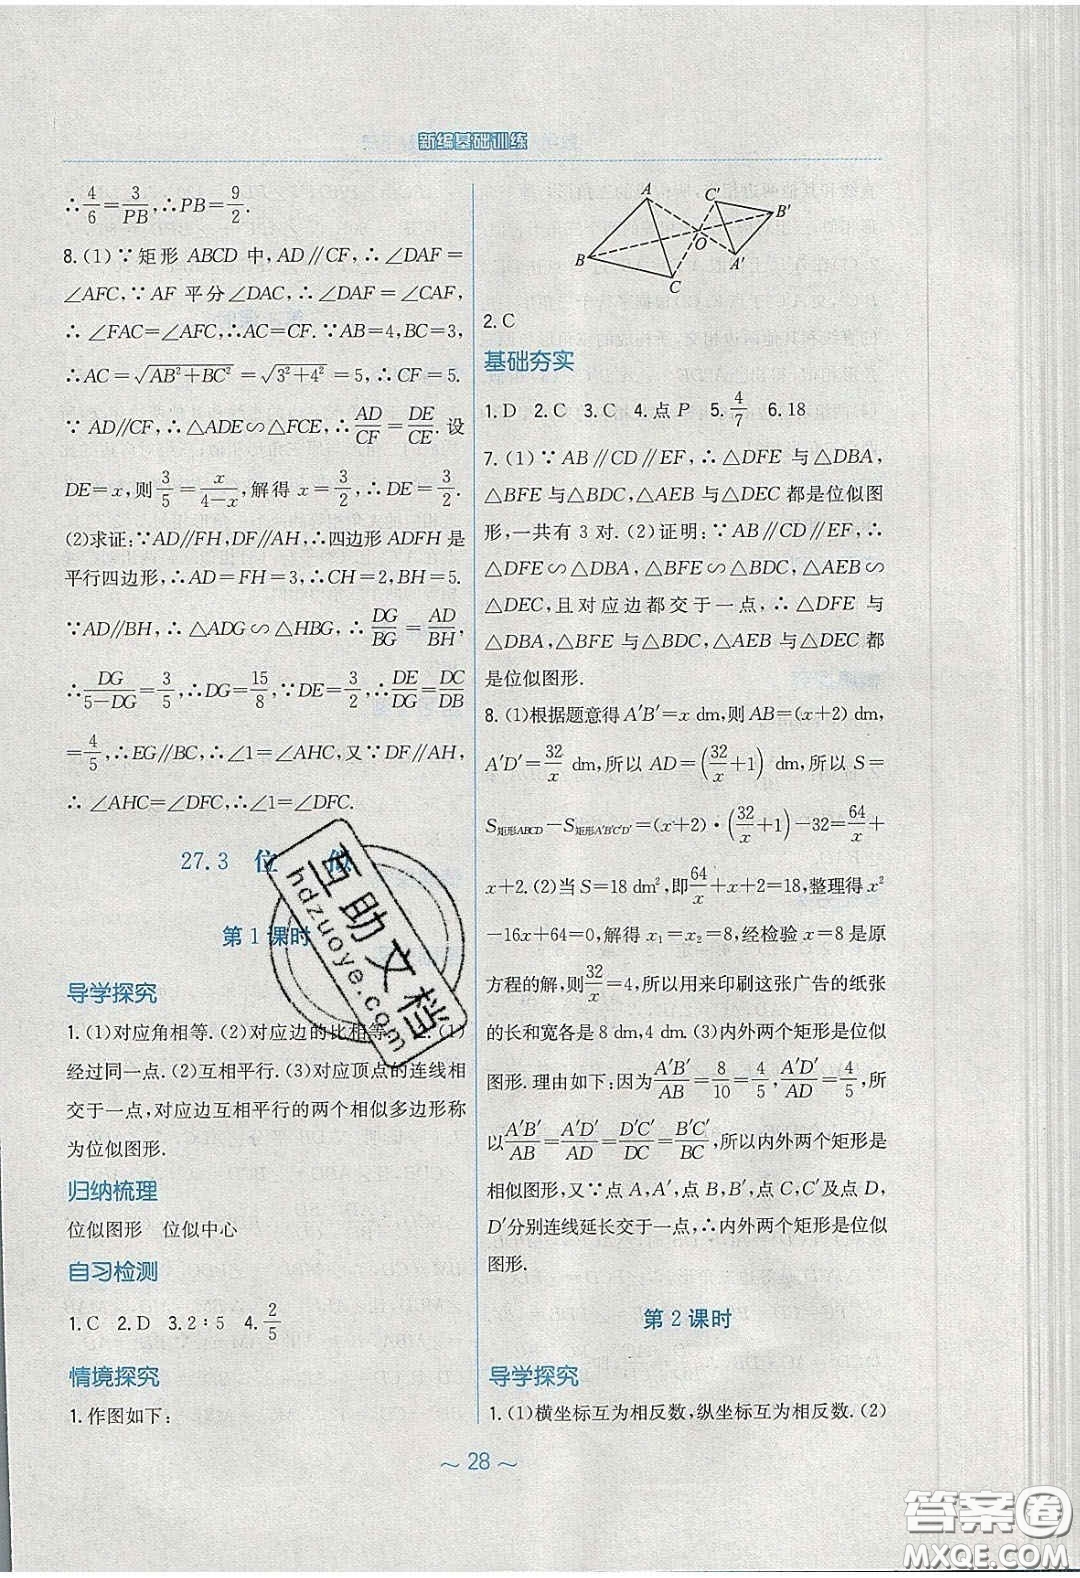 新编基础训练
∴4/6=3/PB,∴PB=9/2.
8.(1)∵矩形 ABCD 中,AD∥CF,∴∠DAF=
∠AFC,∵AF 平分∠DAC,∴∠DAF=∠CAF,
∴∠FAC=∠AFC,∴AC=CF.∵AB=4,BC=3,
∴AC=√(AB²+BC²)=√(3²+4²)=5,∴CF=5.
∵AD∥CF,∴△ADE∽△FCE,∴AD/CF=DE/CE.设
DE=x,则3/5=x/(4-x),解得 x=3/2,∴DE=3/2.
(2)求证:∵AD∥FH,DF∥AH,∴四边形 ADFH 是
平行四边形,∴AD=FH=3,∴CH=2,BH=5.
∵AD∥BH,∴△ADG∽△HBG,∴DG/BG=AD/BH,
∴DG/(5-DG)=3/5,∴DG=15/8,∵DE=3/2,∴DE/DG=DC/DB
=4/5,∴EG∥BC,∴∠1=∠AHC,又∵DF∥AH,
∴∠AHC=∠DFC,∴∠1=∠DFC.
27.3 位 似
第 1 课时
导学探究
1.(1)对应角相等.(2)对应边的比相等. (1)
经过同一点.(2)互相平行.(3)对应顶点的连线相
交于一点,对应边互相平行的两个相似多边形称
为位似图形.
归纳梳理
位似图形 位似中心
自习检测
1.C 2.D 3.2∶5 4.2/5
情境探究
1.作图如下:
A
B
C
O
C′
B′
A′
2.C
基础夯实
1.D 2.C 3.C 4.点 P 5.4/7 6.18
7.(1)∵AB∥CD∥EF,∴△DFE 与△DBA,
△BFE 与△BDC,△AEB 与△DEC 都是位似图
形,一共有 3 对.(2)证明:∵AB∥CD∥EF,∴
△DFE∽△DBA,△BFE∽△BDC,△AEB∽
△DEC,且对应边都交于一点,∴△DFE 与
△DBA,△BFE 与△BDC,△AEB 与△DEC 都
是位似图形.
8.(1)根据题意得 A′B′=x dm,则 AB=(x+2) dm,
A′D′=32/x dm,所以 AD=(32/x+1) dm,所以 S=
S矩形ABCD-S矩形A′B′C′D′=(x+2)·(32/x+1)-32=64/x+
x+2.(2)当 S=18 dm²,即64/x+x+2=18,整理得 x²
-16x+64=0,解得 x₁=x₂=8,经检验 x=8 是原
方程的解,则32/x=4,所以用来印刷这张广告的纸张
的长和宽各是 8 dm,4 dm.(3)内外两个矩形是位似
图形.理由如下:因为A′B′/AB=8/10=4/5,A′D′/AD=4/5,所
以A′B′/AB=A′D′/AD=D′C′/DC=B′C′/BC,所以内外两个矩形是
相似图形,又∵点 A,A′,点 B,B′,点 C,C′及点 D,
D′分别连线延长交于一点,∴内外两个矩形是位似
图形.
第 2 课时
导学探究
1.(1)横坐标互为相反数,纵坐标互为相反数.(2)
～ 28 ～
互助文档
hdzuoye.com
答案圈
MXQE.COM